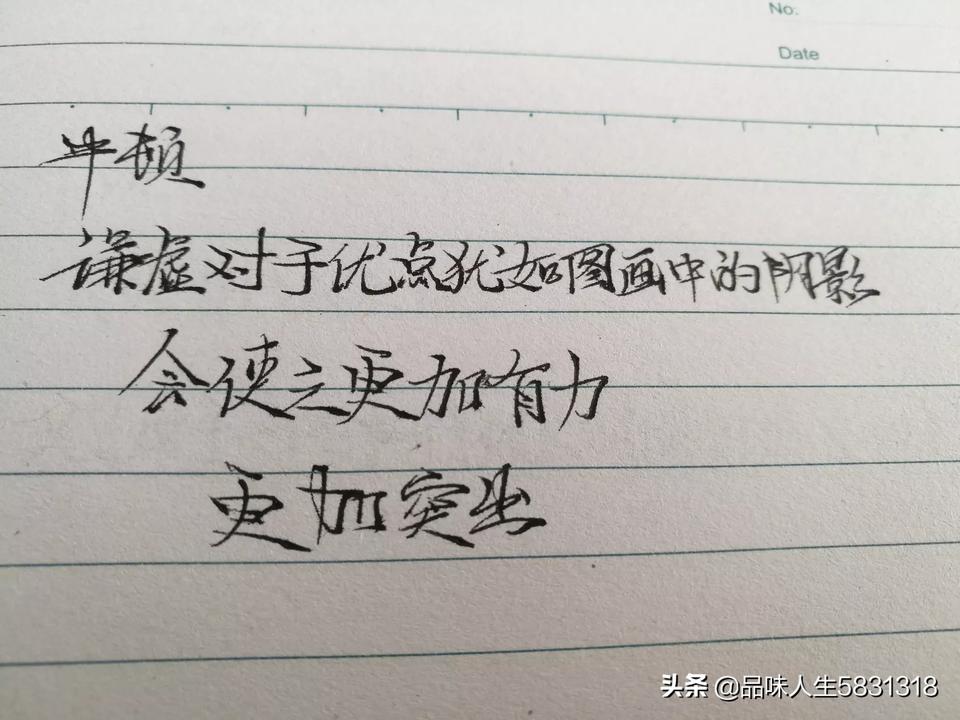 No:
Date
牛顿
谦虚对于优点犹如图画中的阴影
会使之更加有力
更加突出
头条 @品味人生5831318